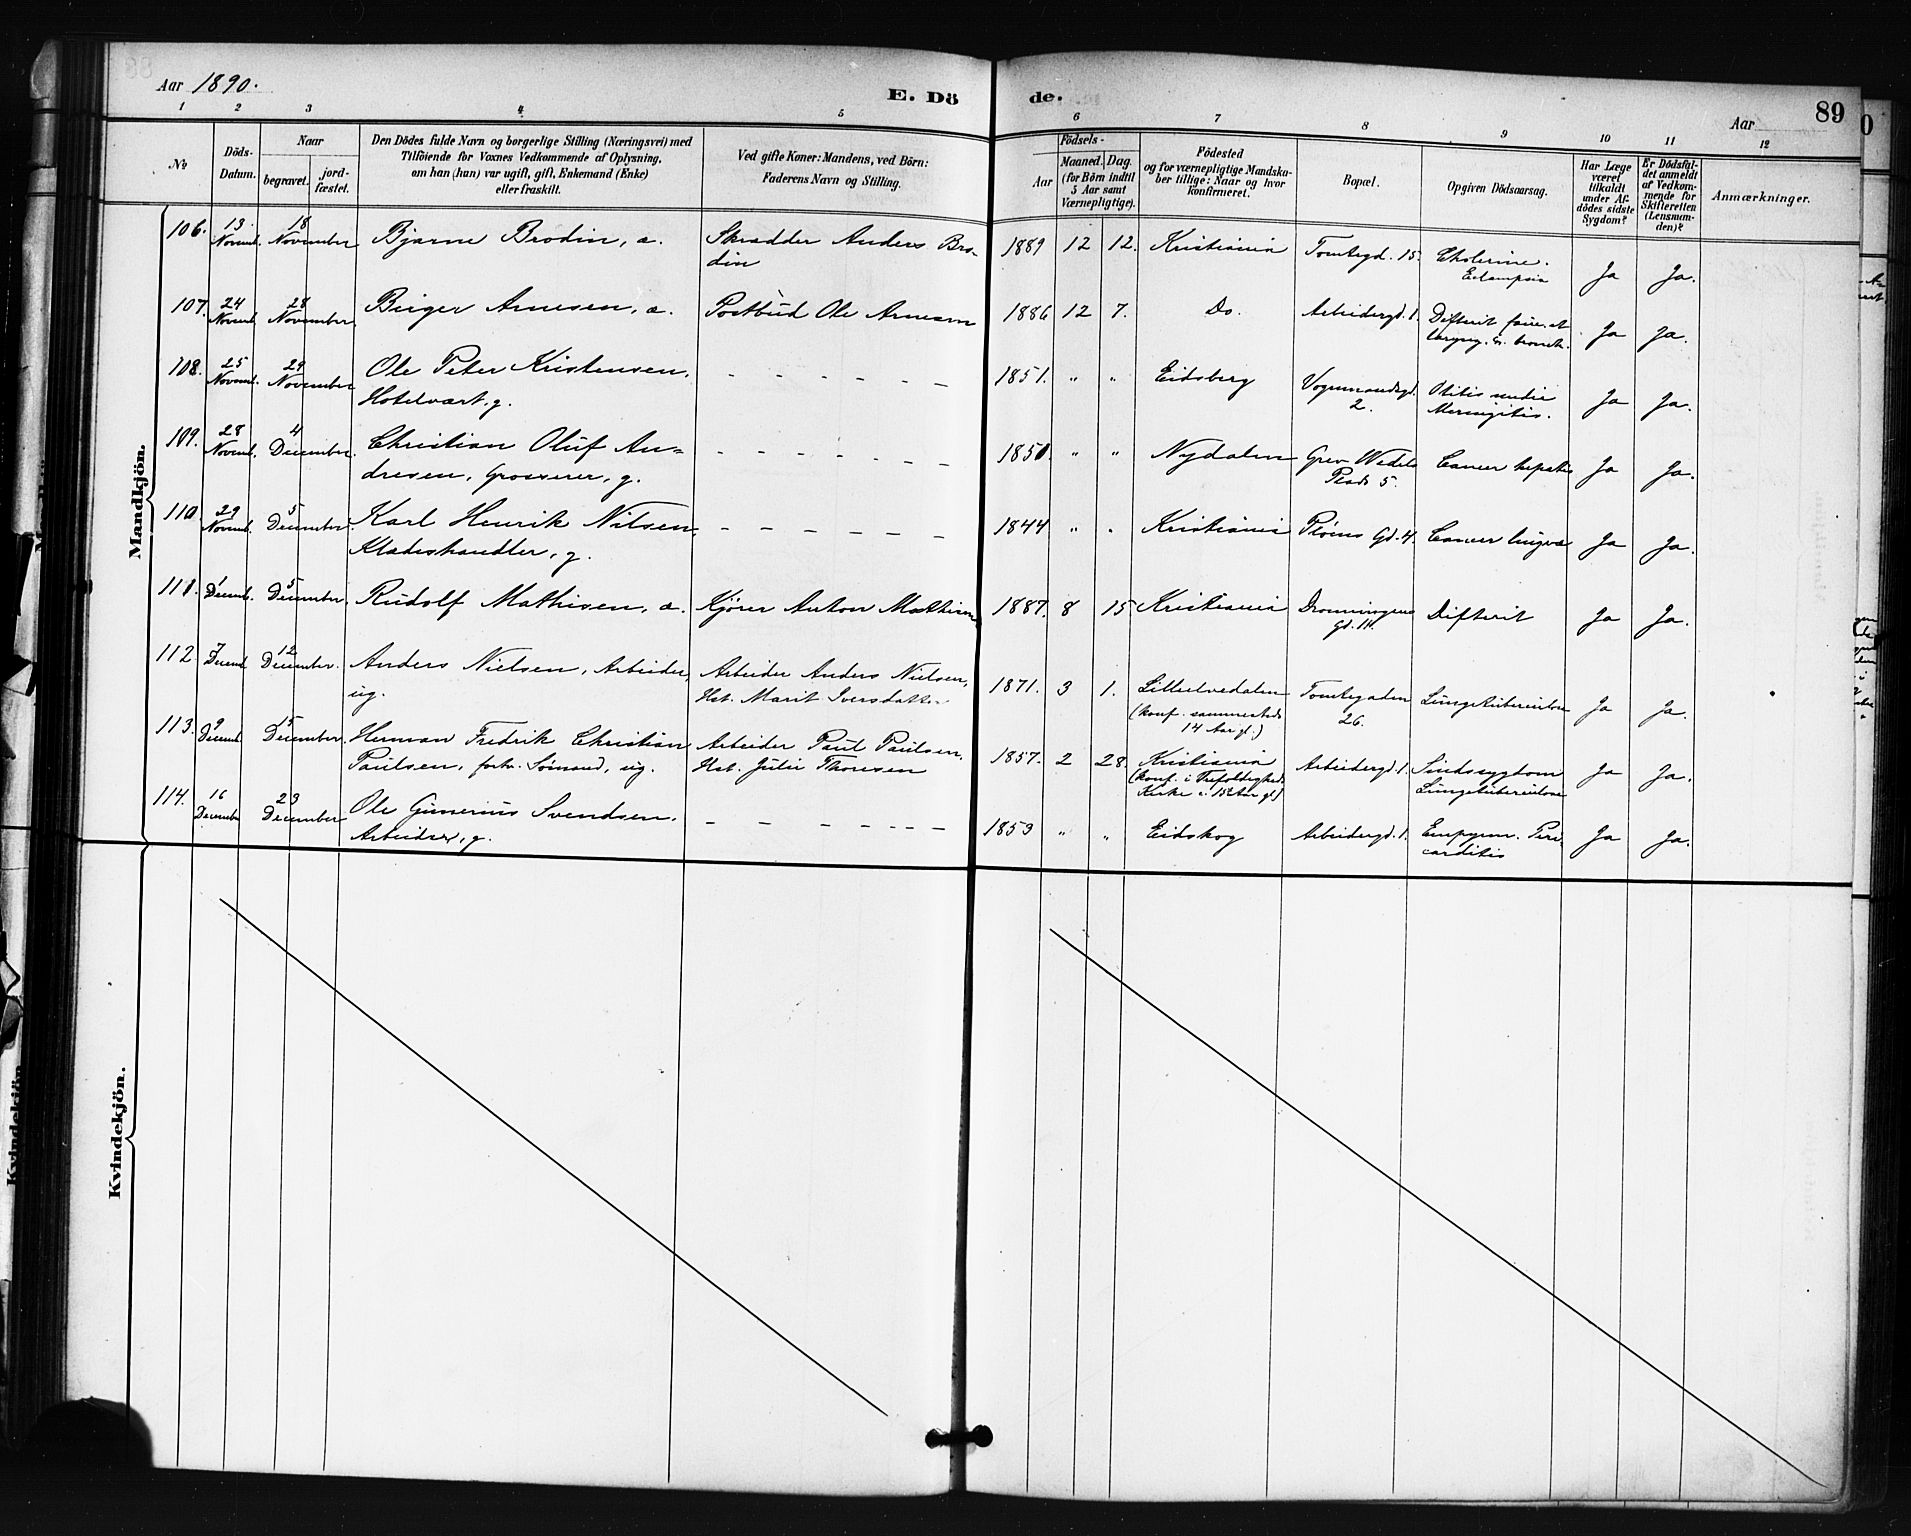 Aar 1890.
E. Dö de.
89
Aar
1 2 3 4 5 6 7 8 9 10 11 12
No
Döds-
Datum.
Naar
begravet.
jord-
fæstet.
Den Dödes fulde Navn og borgerlige Stilling (Næringsvei) med
Tilföiende for Voxnes Vedkommende af Oplysning,
om han (hun) var ugift, gift, Enkemand (Enke)
eller fraskilt.
Ved gifte Koner: Mandens, ved Börn:
Faderens Navn og Stilling.
Födsels-
Aar
Maaned. Dag.
(for Börn indtil
5 Aar samt
Værnepligtige).
Födested
og for værnepligtige Mandska-
ber tillige: Naar og hvor
konfirmeret.
Bopæl.
Opgiven Dödsaarsag.
Har Læge
været
tilkaldt
under Af-
dödes sidste
Sygdom?
Er Dödsfal-
det anmeldt
af Vedkom-
mende for
Skifteretten
(Lensman-
den)?
Anmærkninger.
Mandkjön.
106. 13. Novemb. 18 November Bjarne Brodin, a. Skrædder Anders Bro-
din
1889 12 12. Kristiania Tomtegd. 15. Cholerine.
Eclampsia Ja Ja.
107. 24 Novemb. 28 November Birger Arnesen, a. Postbud Ole Arnesen
1886 12 7. Do. Arbeidergd. 1. Difterit fauc. et
laryng. & bronch. Ja Ja.
108. 25 Novemb. 29 November Ole Peter Kristensen,
Hotelvært, g. - - - - - -
1851. " " Eidsberg Vognmandsgd.
2. Otitis media
Meningitis. Ja Ja.
109. 28 Novemb. 4 December. Christian Oluf An=
dresen, Grosserer, g. - - - - - - -
1850. " " Nydalen Grev Wedels
Plads 5. Cancer hepatis Ja Ja.
110. 29 Novemb. 5 December. Karl Henrik Nilsen,
Klædeshandler, g. - - - - - -
1844 " " Kristiania Pløens Gd. 4. Cancer lingvæ Ja Ja.
111. 1 Decemb. 5 December. Rudolf Mathisen, a. Kjører Anton Mathisen
1887. 8 15 Kristiania Dronningens
Gd. Difterit Ja Ja.
112. 7 Decemb. 12 December. Anders Nielsen, Arbeider,
ug. Arbeider Anders Nielsen,
Hst. Marit Iversdatter
1871. 3 1. Lilleelvedalen
(konf. sammesteds
14 Aar gl.) Tomtegaden
26. Lungetuberculose Ja Ja.
113. 9 Decemb. 15 December. Herman Fredrik Christian
Paulsen, forhv. Sømand, ug. Arbeider Paul Paulsen,
Hst. Julie Thoresen
1857. 2 28. Kristiania
(konf. i Trefoldigheds
Kirke i 15de Aar gl) Arbeidergd. 1. Sindssygdom
Lungetuberculose Ja Ja.
114. 16 December 23 December Ole Gunerius Svendsen,
Arbeider, g. - - - - - - -
1859 " " Eidskog Arbeidergd. 1. Empyem. Peri-
carditis Ja Ja.
Kvindekjön.
Kvindekjön